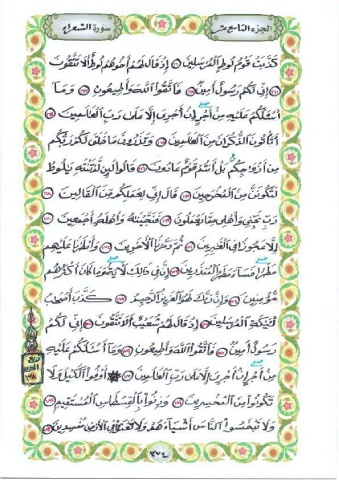 الجزء التاسع عشر
سورة الشعراء
كذبت قوم لوط المرسلين إذ قال لهم أخوهم لوط ألا تتقون
إني لكم رسول أمين فاتقوا الله وأطيعون وما
أسئلكم عليه من أجر إن أجري إلا على رب العالمين
أتأتون الذكران من العالمين وتذرون ما خلق لكم ربكم
من أزواجكم بل أنتم قوم عادون قالوا لئن لم تنته يلوط
لتكونن من المخرجين قال إني لعملكم من القالين
رب نجني وأهلي مما يعملون فنجينه وأهله أجمعين
إلا عجوزا في الغابرين ثم دمرنا الآخرين وأمطرنا عليهم
مطرا فساء مطر المنذرين إن في ذلك لآية وما كان أكثرهم
مؤمنين وإن ربك لهو العزيز الرحيم كذب أصحاب
لئيكة المرسلين إذ قال لهم شعيب ألا تتقون إني لكم
رسول أمين فاتقوا الله وأطيعون وما أسئلكم عليه
من أجر إن أجري إلا على رب العالمين أوفوا الكيل ولا
تكونوا من المخسرين وزنوا بالقسطاس المستقيم
ولا تبخسوا الناس أشياءهم ولا تعثوا في الأرض مفسدين
٣٧٤